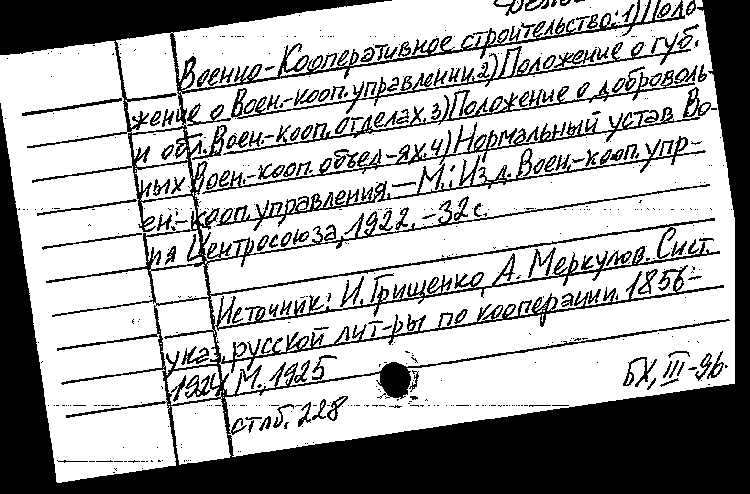 Военно-Кооперативное строительство: 1) Поло-
жение о Воен.-кооп. управлении. 2) Положение о губ.
и обл. Воен.-кооп. отделах. 3) Положение о доброволь-
ных Воен.-кооп. объед-ях. 4) Нормальный устав Во-
ен.-кооп. управления. — М.: Изд. Воен.-кооп. упр-
ня Центросоюза, 1922. - 32 с.
Источник: И. Грищенко, А. Меркулов. Сист.
указ. русской лит-ры по кооперации. 1856-
1924. М., 1925
стлб. 228
БХ, III-96.